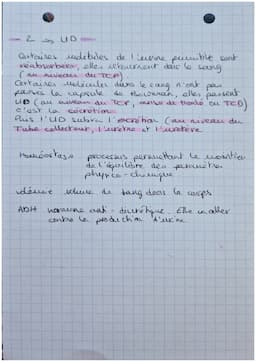 2 → UD
Certaines molécules de l'urine primitive sont
réabsorbées, elles retournent dans le sang
(au niveau du TCP)
Certaines molécules dans le sang n'ont pas
passés la capsule de Bowman, elles passent
UD (au niveau du TCP, anse de Henlé ou TCD)
c'est la sécrétion
Puis l'UD subira l'excrétion (au niveau du
Tube collecteur, l'uretère et l'urètre
Homéostasie processus permettant le maintien
de l'équilibre des paramètres
physico-chimique
volémie volume de sang dans le corps
ADH hormone anti-diurétique. Elle va aller
contre la production d'urine